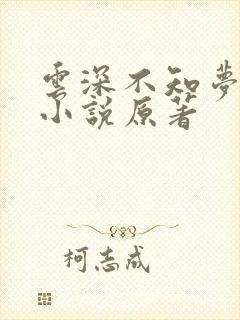 雲深不知夢
小說原著
柯志成